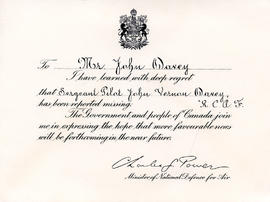 To Mr John Davey
I have learned with deep regret
that Sergeant Pilot John Vernon Davey,
has been reported missing. R.C.A.F.
The Government and people of Canada join
me in expressing the hope that more favourable news
will be forthcoming in the near future.
Charles G. Power
Minister of National Defence for Air